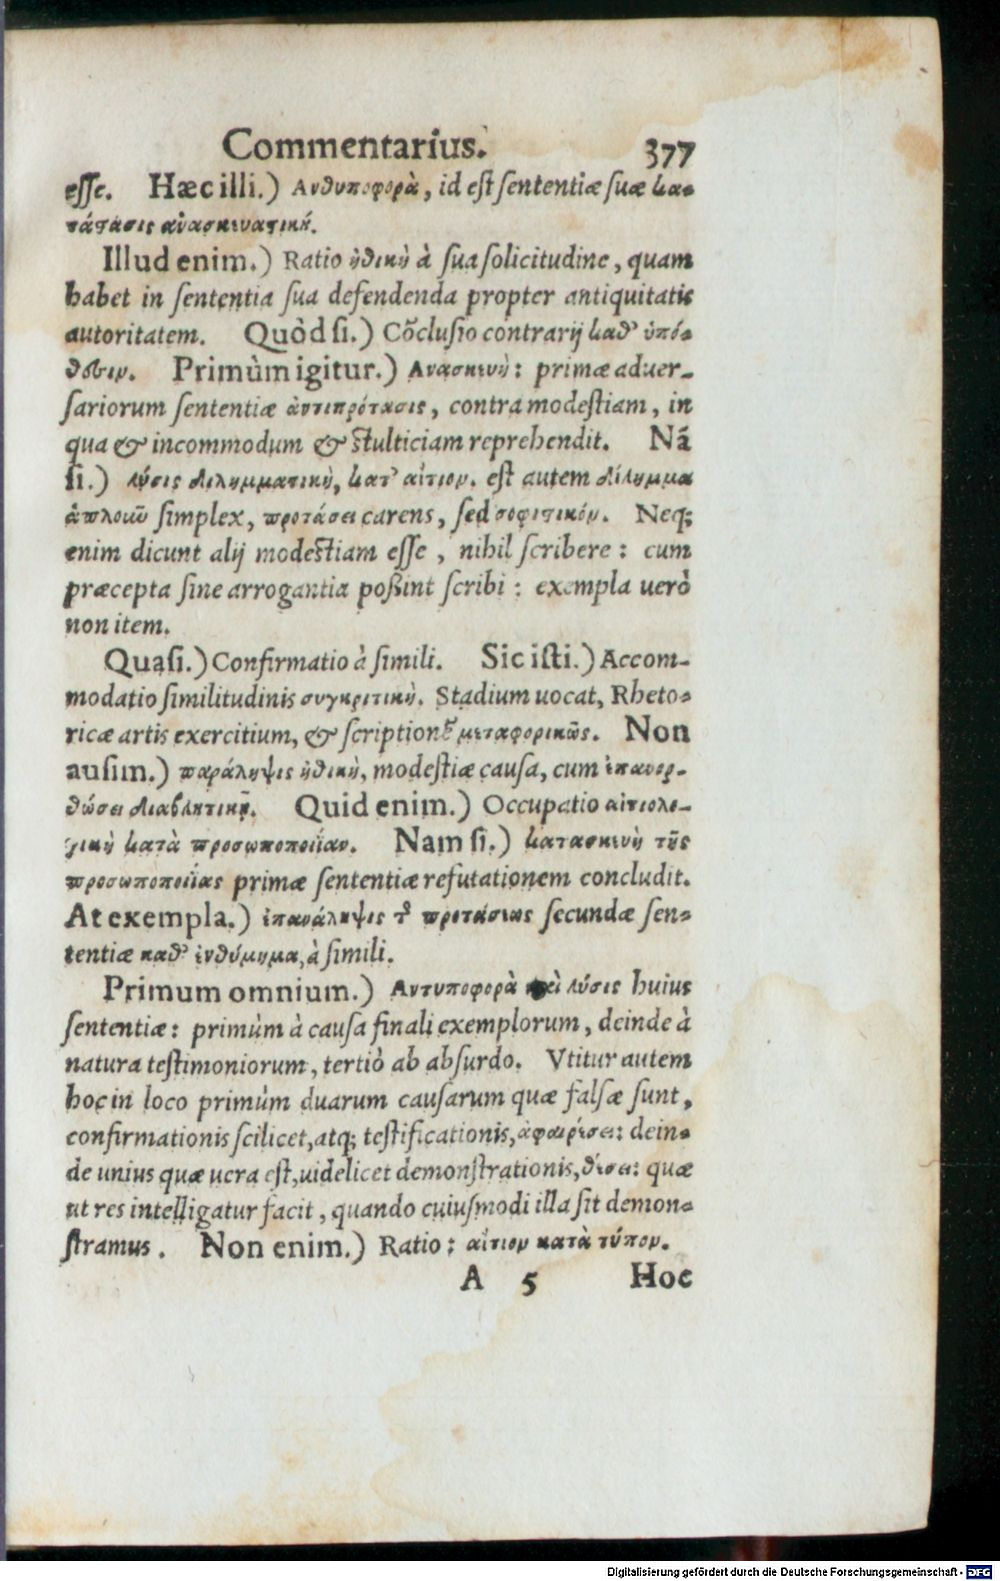 Commentarius. 377
esse. Hæc illi.) Ανθυποφορὰ, id est sententiæ suæ κα-
τάστασις ἀνασκευαστική.
Illud enim.) Ratio ἠθικὴ à sua solicitudine, quam
habet in sententia sua defendenda propter antiquitatis
autoritatem. Quòd si.) Cõclusio contrarij καθ᾽ ὑπό-
θεσιν. Primùm igitur.) Ανασκευὴ: primæ aduer-
sariorum sententiæ ἀντιπρότασις, contra modestiam, in
qua & incommodum & stulticiam reprehendit. Nã
si.) λύσις διλημματικὴ, κατ᾽ αἴτιον. est autem δίλημμα
ἁπλοικῶ simplex, προτάσει carens, sed σοφιστικόν. Neq;
enim dicunt alij modestiam esse, nihil scribere: cum
præcepta sine arrogantia possint scribi: exempla uerò
non item.
Quasi.) Confirmatio à simili. Sic isti.) Accom-
modatio similitudinis συγκριτικὴ. Stadium uocat, Rheto-
ricæ artis exercitium, & scriptionẽ μεταφορικῶς. Non
ausim.) παράληψις ἠθικὴ, modestiæ causa, cum ἐπανορ-
θώσει διαβλητικῇ. Quid enim.) Occupatio αἰτιολο-
γικὴ κατὰ προσωποποιΐαν. Nam si.) κατασκευὴ τῆς
προσωποποιΐας primæ sententiæ refutationem concludit.
At exempla.) ἐπανάληψις τ῀ προτάσεως secundæ sen-
tentiæ καθ᾽ ἐνθύμημα, à simili.
Primum omnium.) Αντυποφορὰ καὶ λύσις huius
sententiæ: primùm à causa finali exemplorum, deinde à
natura testimoniorum, tertiò ab absurdo. Vtitur autem
hoc in loco primùm duarum causarum quæ falsæ sunt,
confirmationis scilicet, atq; testificationis, ἀφαιρέσει: dein-
de unius quæ uera est, uidelicet demonstrationis, θέσει: quæ
ut res intelligatur facit, quando cuiusmodi illa sit demon-
stramus. Non enim.) Ratio: αἴτιον κατὰ τύπον.
A 5 Hoc
Digitalisierung gefördert durch die Deutsche Forschungsgemeinschaft - DFG